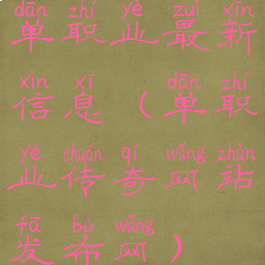 dān zhí yè zuì xīn
单职业最新
xìn xī dān zhí
信息（单职
yè chuán qí wǎng zhàn
业传奇网站
fā bù wǎng
发布网）